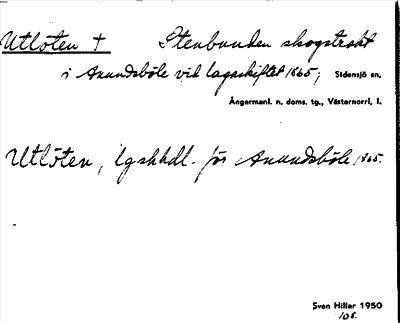 Utlöten † Stenbunden skogstrakt
i Anundsböle vid lagaskiftet 1865; Sidensjö sn,
Ångermanl. n. doms. tg., Västernorrl. l.
Utlöten, lgskhdl. för Anundsböle 1865.
Sven Hiller 1950
108.